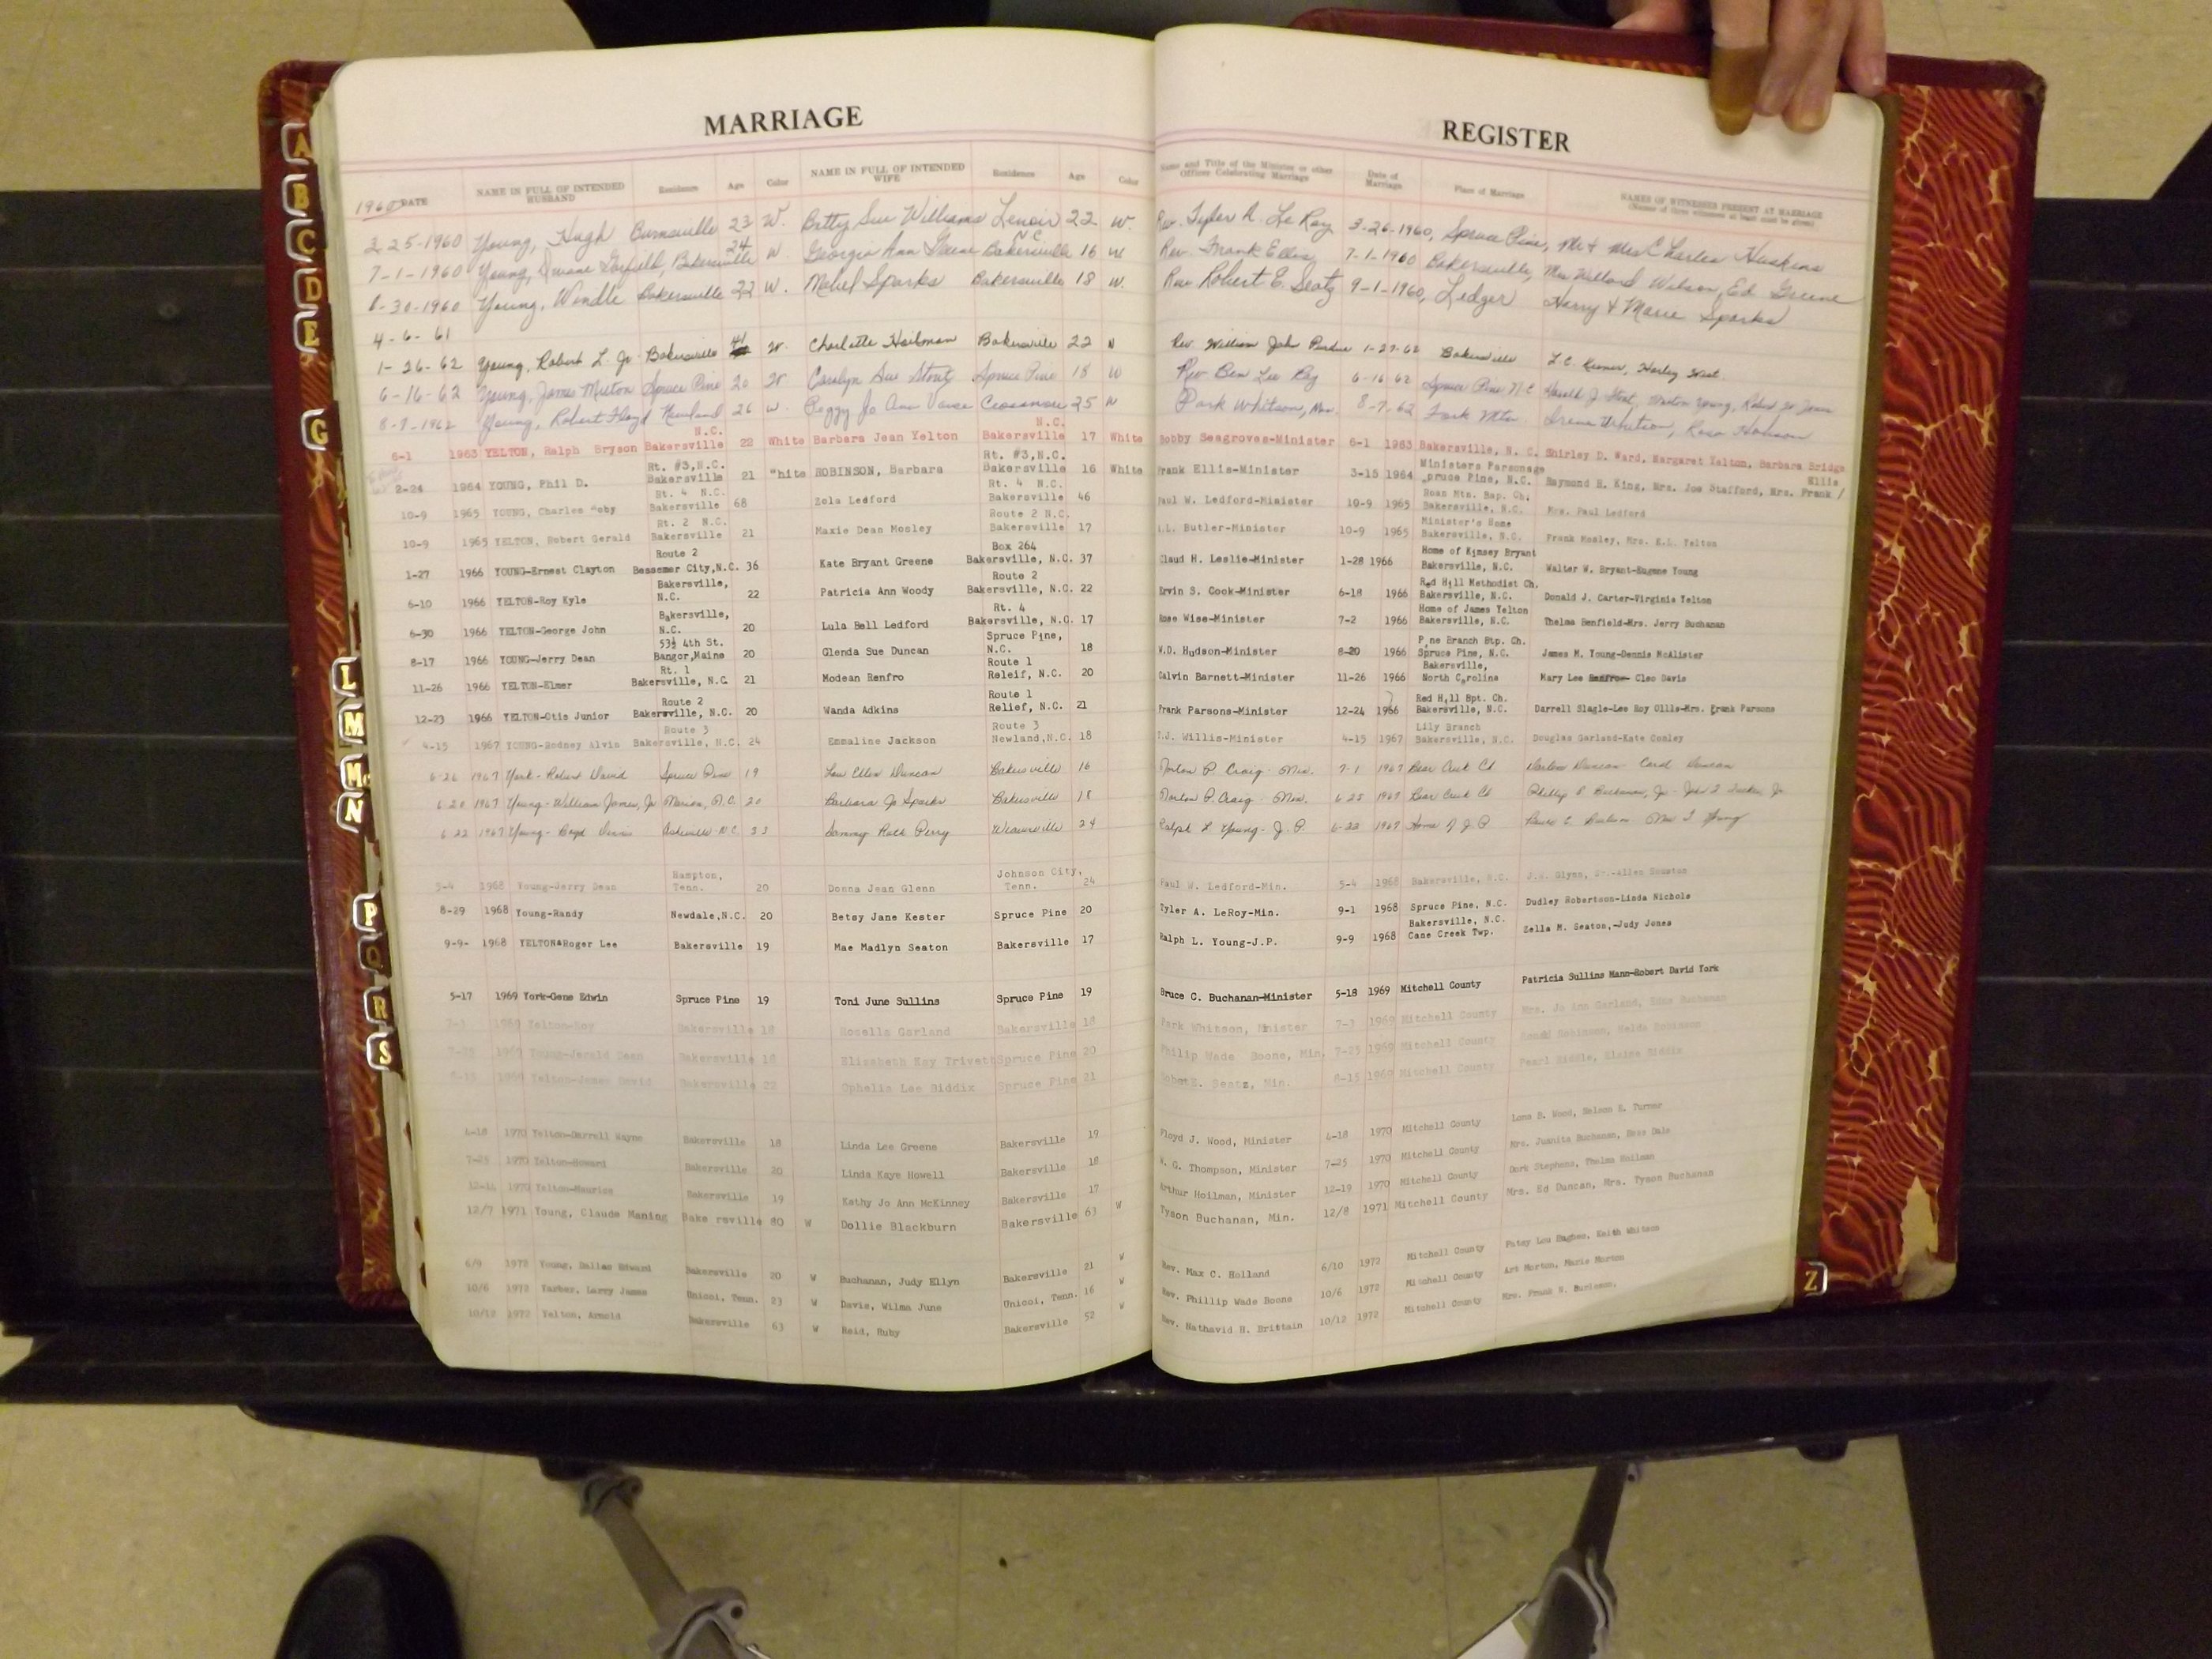 MARRIAGE REGISTER
1960 DATE NAME IN FULL OF INTENDED HUSBAND Residence Age Color NAME IN FULL OF INTENDED WIFE Residence Age Color Name and Title of the Minister or other Officer Celebrating Marriage Date of Marriage Place of Marriage NAMES OF WITNESSES PRESENT AT MARRIAGE (Names of three witnesses at least must be given)
3-25-1960 Young, Hugh Burnsville 23 W. Betty Sue Williams Lenoir N C 22 W. Rev. Tyler A. Le Roy 3-26-1960, Spruce Pine, Mr & Mrs Charles Huskins
7-1-1960 Young, Dwane Garfield, Bakersville 24 W Georgia Ann Greene Bakersville 16 W Rev. Frank Ellis, 7-1-1960 Bakersville, Mrs Willard Wilson, Ed Greene
8-30-1960 Young, Wendle Bakersville 22 W. Mabel Sparks Bakersville 18 W. Rev Robert E. Seatz 9-1-1960, Ledger Harry & Marie Sparks
4-6-61
1-26-62 Young, Robert L. Jr Bakersville 41 W. Charlotte Hoilman Bakersville 22 Rev. William John Perdue 1-27-62 Bakersville
6-16-62 Young, James Milton Spruce Pine 20 W Carolyn Sue Stout Spruce Pine 18 W Rev Ben Lee 6-16-62 Spruce Pine N C Harold J. Stout, Milton Young,
8-7-1962 Young, Robert Floyd Newland 26 W. Peggy Jo Ann Vance Crossnore 25 W Park Whitson, Min. 8-7-62 Fork Mtn Irene Whitson,
6-1 1963 YELTON, Ralph Bryson N.C. Bakersville 22 White Barbara Jean Yelton N.C. Bakersville 17 White Bobby Seagroves-Minister 6-1 1963 Bakersville, N. C. Shirley D. Ward, Margaret Yelton, Barbara Bridge
2-24 1964 YOUNG, Phil D. Rt. #3,N.C. Bakersville 21 "hite ROBINSON, Barbara Rt. #3,N.C. Bakersville 16 White Frank Ellis-Minister 3-15 1964 Ministers Parsonage pruce Pine, N.C. Raymond H. King, Mrs. Joe Stafford, Mrs. Frank / Ellis
10-9 1965 YOUNG, Charles "oby Rt. 4 N.C. Bakersville 68 Zola Ledford Rt. 4 N.C. Bakersville 46 Paul W. Ledford-Minister 10-9 1965 Roan Mtn. Bap. Ch. Bakersville, N.C. Mrs. Paul Ledford
10-9 1965 YELTON, Robert Gerald Rt. 2 N.C. Bakersville 21 Maxie Dean Mosley Route 2 N.C. Bakersville 17 Butler-Minister 10-9 1965 Minister's Home Bakersville, N.C. Frank Mosley, Mrs. E.L. Yelton
1-27 1966 YOUNG-Ernest Clayton Route 2 Bessemer City,N.C. 36 Kate Bryant Greene Box 264 Bakersville, N.C. 37 Claud H. Leslie-Minister 1-28 1966 Home of Kimsey Bryant Bakersville, N.C. Walter W. Bryant-Eugene Young
6-10 1966 YELTON-Roy Kyle Bakersville, N.C. 22 Patricia Ann Woody Route 2 Bakersville, N.C. 22 Ervin S. Cook-Minister 6-18 1966 Red Hill Methodist Ch. Bakersville, N.C. Donald J. Carter-Virginia Yelton
6-30 1966 YELTON-George John Bakersville, N.C. 20 Lula Bell Ledford Rt. 4 Bakersville, N.C. 17 Rose Wise-Minister 7-2 1966 Home of James Yelton Bakersville, N.C. Thelma Benfield-Mrs. Jerry Buchanan
8-17 1966 YOUNG-Jerry Dean 53½ 4th St. Bangor,Maine 20 Glenda Sue Duncan Spruce Pine, N.C. 18 W.D. Hudson-Minister 8-20 1966 Pine Branch Btp. Ch. Spruce Pine, N.C. James M. Young-Dennis McAlister
11-26 1966 YELTON-Elmer Rt. 1 Bakersville, N.C 21 Modean Renfro Route 1 Releif, N.C. 20 Calvin Barnett-Minister 11-26 1966 Bakersville, North Carolina Mary Lee Renfro- Cleo Davis
12-23 1966 YELTON-Otis Junior Route 2 Bakersville, N.C. 20 Wanda Adkins Route 1 Relief, N.C. 21 Frank Parsons-Minister 12-24 1966 Red Hill Bpt. Ch. Bakersville, N.C. Darrell Slagle-Lee Roy Ollis-Mrs. Frank Parsons
4-15 1967 YOUNG-Rodney Alvin Route 3 Bakersville, N.C. 24 Emmaline Jackson Route 3 Newland,N.C. 18 Willis-Minister 4-15 1967 Lily Branch Bakersville, N.C. Douglas Garland-Kate Conley
6-26 1967 York- Robert David Spruce Pine 19 Lou Ellen Duncan Bakersville 16 Norton P. Craig- Min. 7-1 1967 Bear Creek Ch Darlene Duncan Carol Duncan
6-20 1967 Young-William James, Jr Marion, N.C. 20 Barbara Jo Sparks Bakersville 18 Norton P. Craig- Min. 6-25 1967 Bear Creek Ch Phillip Buchanan, Jr-
6-22 1967 Young- Boyd Asheville N.C. 33 Sammy Ruth Perry Weaverville 24 Ralph L. Young- J.P. 6-22 1967 Home of J.P.
5-4 1968 Young-Jerry Dean Hampton, Tenn. 20 Donna Jean Glenn Johnson City, Tenn. 24 Paul W. Ledford-Min. 5-4 1968 Bakersville, N.C. Houston
8-29 1968 Young-Randy Newdale,N.C. 20 Betsy Jane Kester Spruce Pine 20 Tyler A. LeRoy-Min. 9-1 1968 Spruce Pine, N.C. Dudley Robertson-Linda Nichols
9-9- 1968 YELTON&Roger Lee Bakersville 19 Mae Madlyn Seaton Bakersville 17 Ralph L. Young-J.P. 9-9 1968 Bakersville, N.C. Cane Creek Twp. Zella M. Seaton,-Judy Jones
5-17 1969 York-Gene Edwin Spruce Pine 19 Toni June Sullins Spruce Pine 19 Bruce C. Buchanan-Minister 5-18 1969 Mitchell County Patricia Sullins Mann-Robert David York
7-1 1969 Yelton-Roy Bakersville 18 Rosella Garland Bakersville 18 Park Whitson, Minister 7-3 1969 Mitchell County Mrs. Jo Ann Garland, Edna Buchanan
7-23 1969 Young-Jerald Dean Bakersville 18 Elizabeth Kay Trivett Spruce Pine 20 Philip Wade Boone, Min. 7-25 1969 Mitchell County Robinson, Robinson
1969 Yelton-James David Bakersville 22 Ophelia Lee Biddix Spruce Pine 21 Seatz, Min. 8-15 1969 Mitchell County Pearl Biddix, Elaine Biddix
4-18 1970 Yelton-Darrell Wayne Bakersville 18 Linda Lee Greene Bakersville 19 Floyd J. Wood, Minister 4-18 1970 Mitchell County Lona B. Wood, Turner
7-25 1970 Yelton-Howard Bakersville 20 Linda Kaye Howell Bakersville 18 G. Thompson, Minister 7-25 1970 Mitchell County Mrs. Juanita Buchanan, Dale
12-14 1970 Yelton-Maurice Bakersville 19 Kathy Jo Ann McKinney Bakersville 17 Arthur Hoilman, Minister 12-19 1970 Mitchell County Stephens, Thelma Hoilman
12/7 1971 Young, Claude Maning Bake rsville 80 W Dollie Blackburn Bakersville 63 W Tyson Buchanan, Min. 12/8 1971 Mitchell County Mrs. Ed Duncan, Mrs. Tyson Buchanan
6/9 1972 Young, Dallas Edward Bakersville 20 W Buchanan, Judy Ellyn Bakersville 21 W Rev. Max C. Holland 6/10 1972 Mitchell County Patsy Lou Hughes, Keith Whitson
10/6 1972 Yarber, Larry James Unicoi, Tenn. 23 W Davis, Wilma June Unicoi, Tenn. 16 W Rev. Phillip Wade Boone 10/6 1972 Mitchell County Art Morton, Marie Morton
10/12 1972 Yelton, Arnold Bakersville 63 W Reid, Ruby Bakersville 52 W Rev. Hathavid H. Brittain 10/12 1972 Mitchell County Mrs. Frank N. Burleson.
A
B
C
D
E
G
L
M
Mc
N
P
Q
R
S
Z